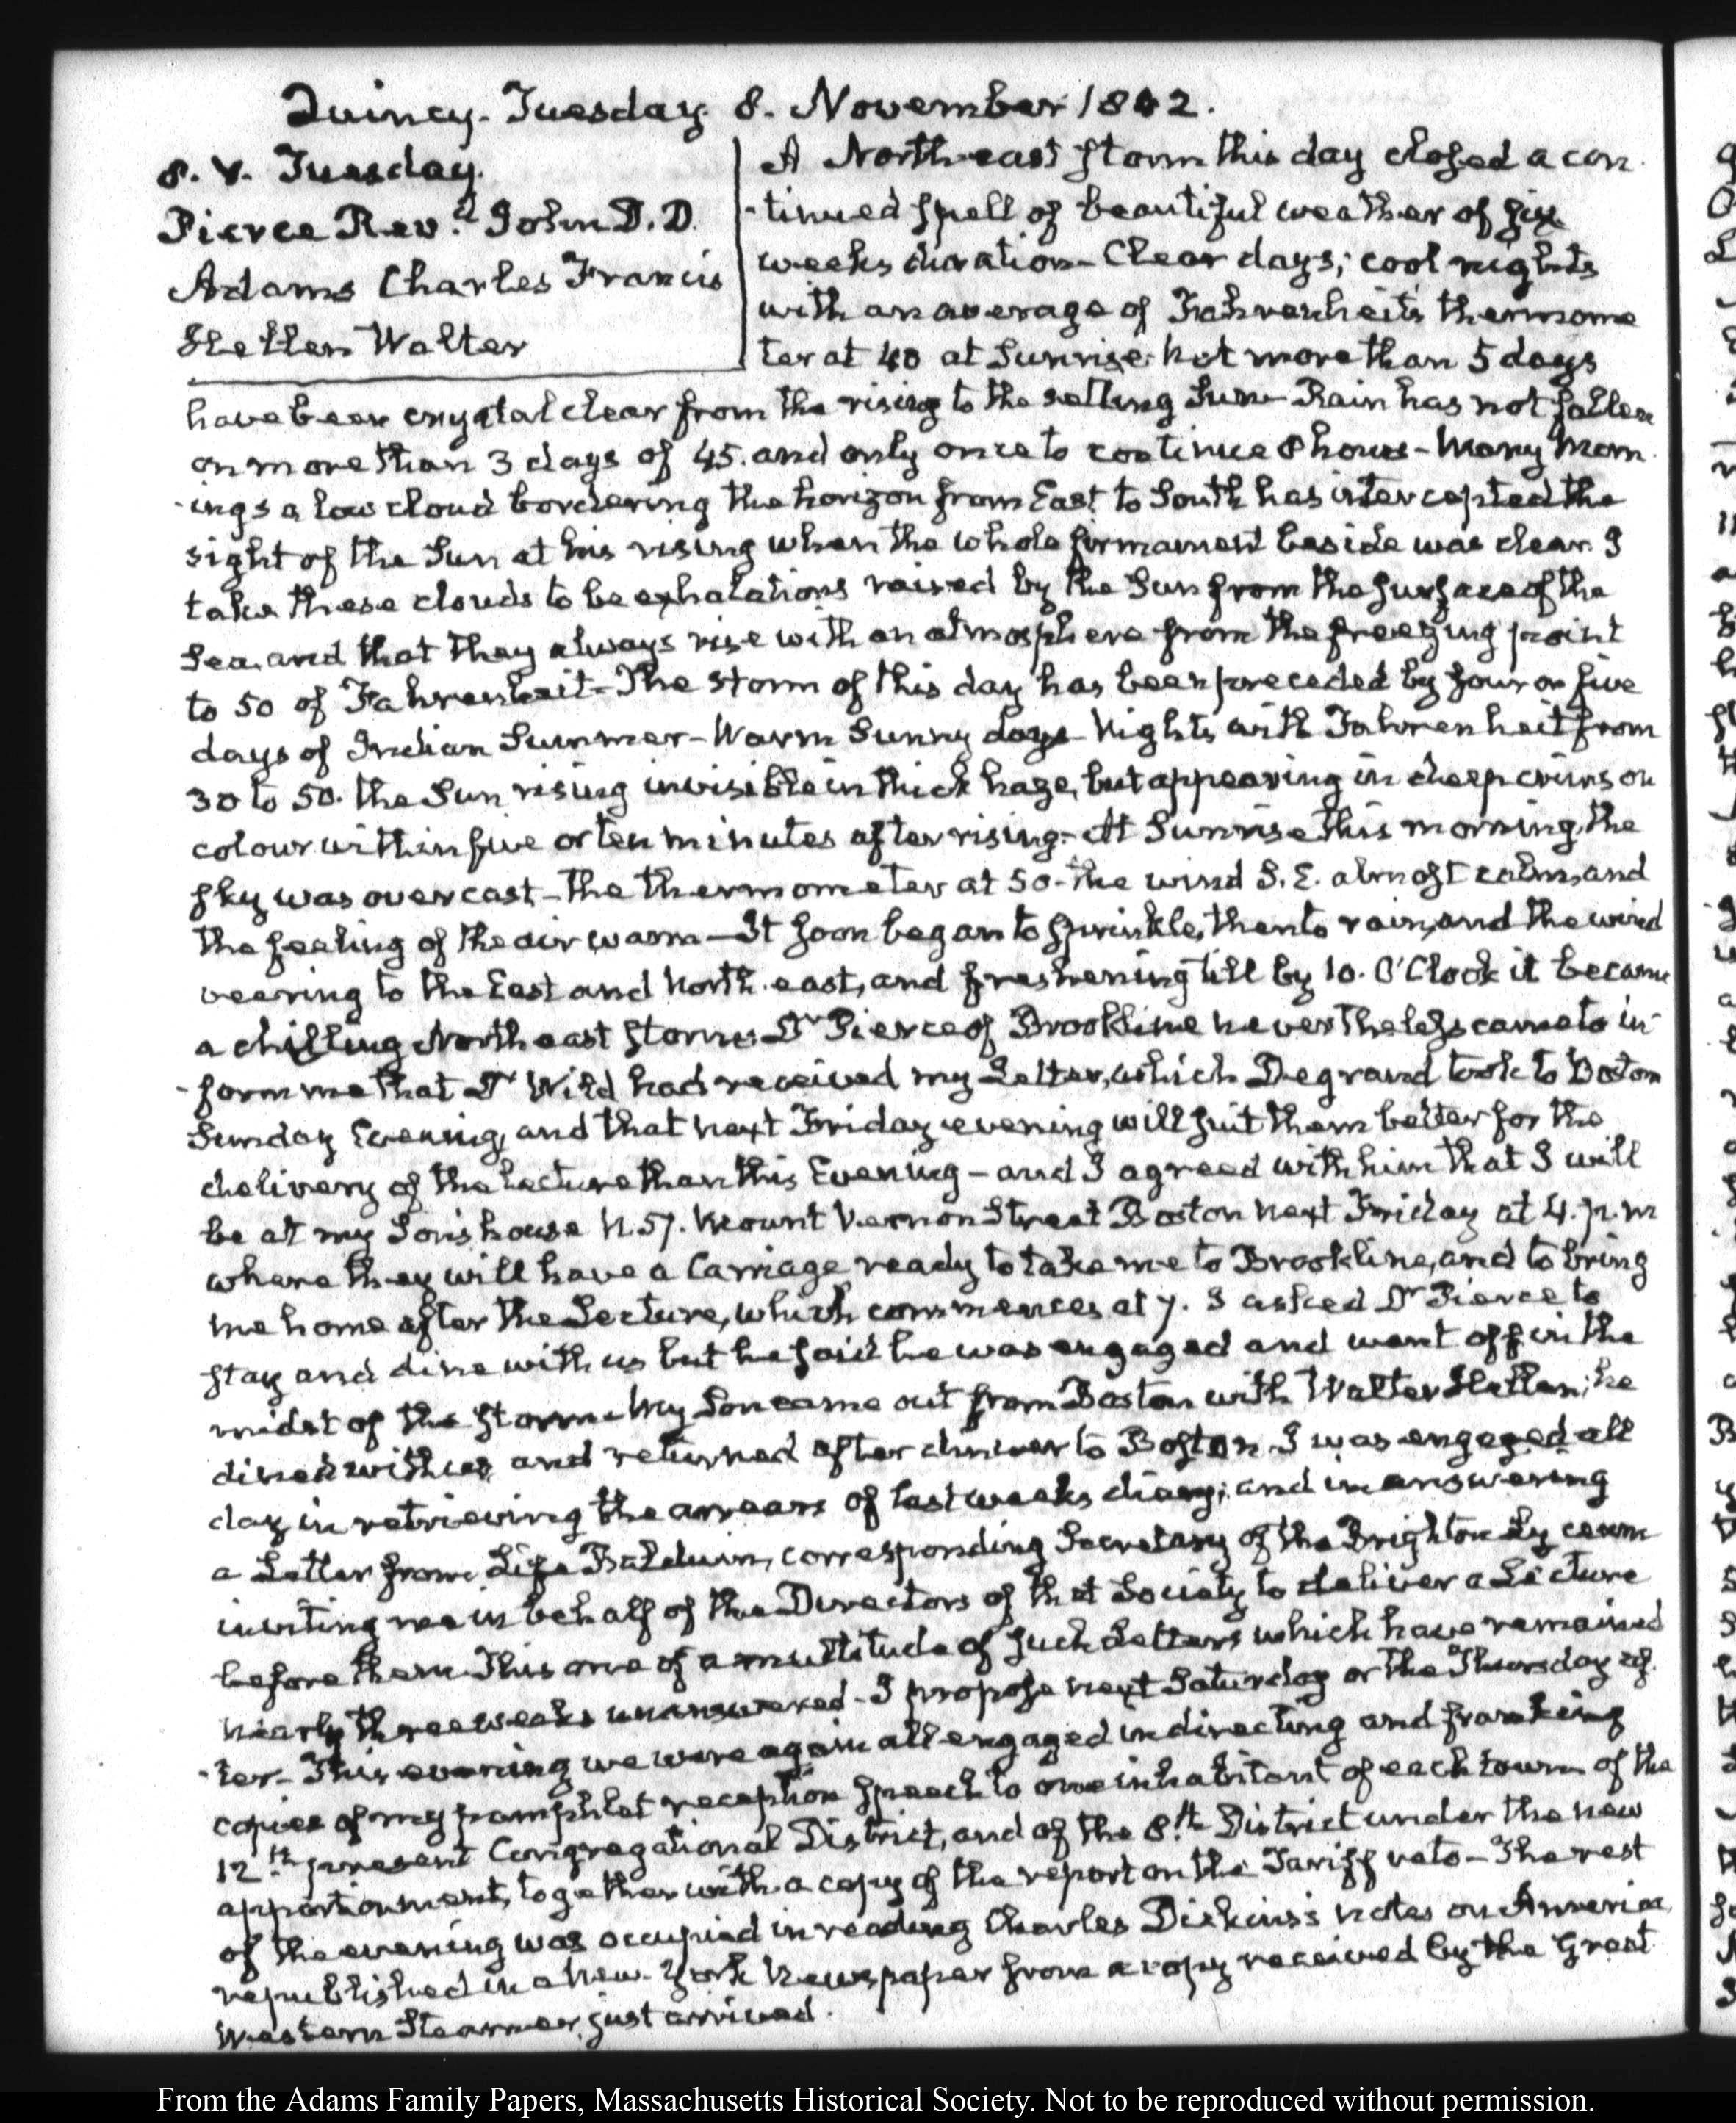 Quincy. Tuesday 8. November 1842.
8. V. Tuesday.
Pierce Revd. John D.D.
Adams Charles Francis
Hellen Walter
A North-east storm this day closed a con
-tinued spell of beautiful weather of six
weeks duration- Clear days; cool nights
with an average of Fahrenheit's thermome
ter at 40 at Sunrise. not more than 5 days
have been crystal clear from the rising to the setting Sun- Rain has not fallen
on more than 3 days of 45. and only once to continue 8 hours- Many Morn
-ings a low cloud bordering the horizon from East to South has intercepted the
sight of the Sun at his rising when the whole firmament beside was clear. I
take these clouds to be exhalations raised by the Sun from the surface of the
Sea, and that they always rise with an atmosphere from the freezing point
to 50 of Fahrenheit- The storm of this day has been preceded by four or five
days of Indian Summer- Warm Sunny days- Nights with Fahrenheit from
30 to 50. the Sun rising invisible in thick haze, but appearing in deep crimson
colour within five or ten minutes after rising.- At Sunrise this morning, the
sky was overcast- the thermometer at 50- the wind S.E. almost calm, and
the feeling of the air warm- It soon began to sprinkle, then to rain, and the wind
veering to the East and North-east, and freshening till by 10. O'Clock it became
a chilling North east storm. Dr Pierce of Brookline nevertheless came to in
-form me that Dr Wild had received my Letter, which Degrand took to Boston
Sunday Evening, and that next Friday evening will suit them better for the
delivery of the Lecture than this Evening- and I agreed with him that I will
be at my Son's house N. 57. Mount Vernon Street Boston next Friday at 4. p.m
where they will have a Carriage ready to take me to Brookline, and to bring
me home after the Lecture, which commences at 7. I asked Dr Pierce to
stay and dine with us but he said he was engaged and went off in the
midst of the storm- My Son came out from Boston with Walter Hellen; he
dined with us, and returned after dinner to Boston. I was engaged all
day in retrieving the arrears of last weeks diary; and in answering
a Letter from Life Baldwin, corresponding Secretary of the Brighton Lyceum
inviting me in behalf of the Directors of that Society to deliver a Lecture
before them- This one of a multitude of such Letters which have remained
nearly three weeks unanswered- I propose next Saturday or the Thursday af
-ter- This evening we were again all engaged in directing and franking
copies of my pamphlet reception speech to one inhabitant of each town of the
12th. present Congregational District, and of the 8th. District under the new
apportionment, together with a copy of the report on the Tariff veto- The rest
of the evening was occupied in reading Charles Dickins's notes on America,
republished in a New-York Newspaper from a copy received by the Great
Western Steamer, just arrived.
From the Adams Family Papers, Massachusetts Historical Society. Not to be reproduced without permission.